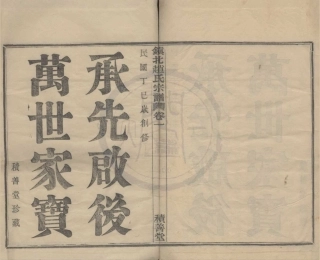 鎮北趙氏宗譜卷一
積善堂
民國丁巳歲創修
承先啟後
萬世家寶
積善堂珍藏